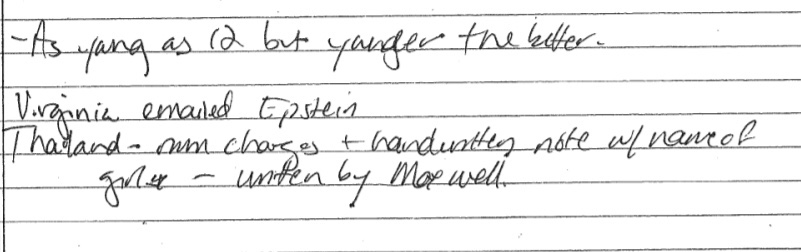 -As yang as 12 but yanger the better.
Virginia emailed Epstein
Thailand - mm charges + handwritten note w/ name of
girl - written by Maxwell.